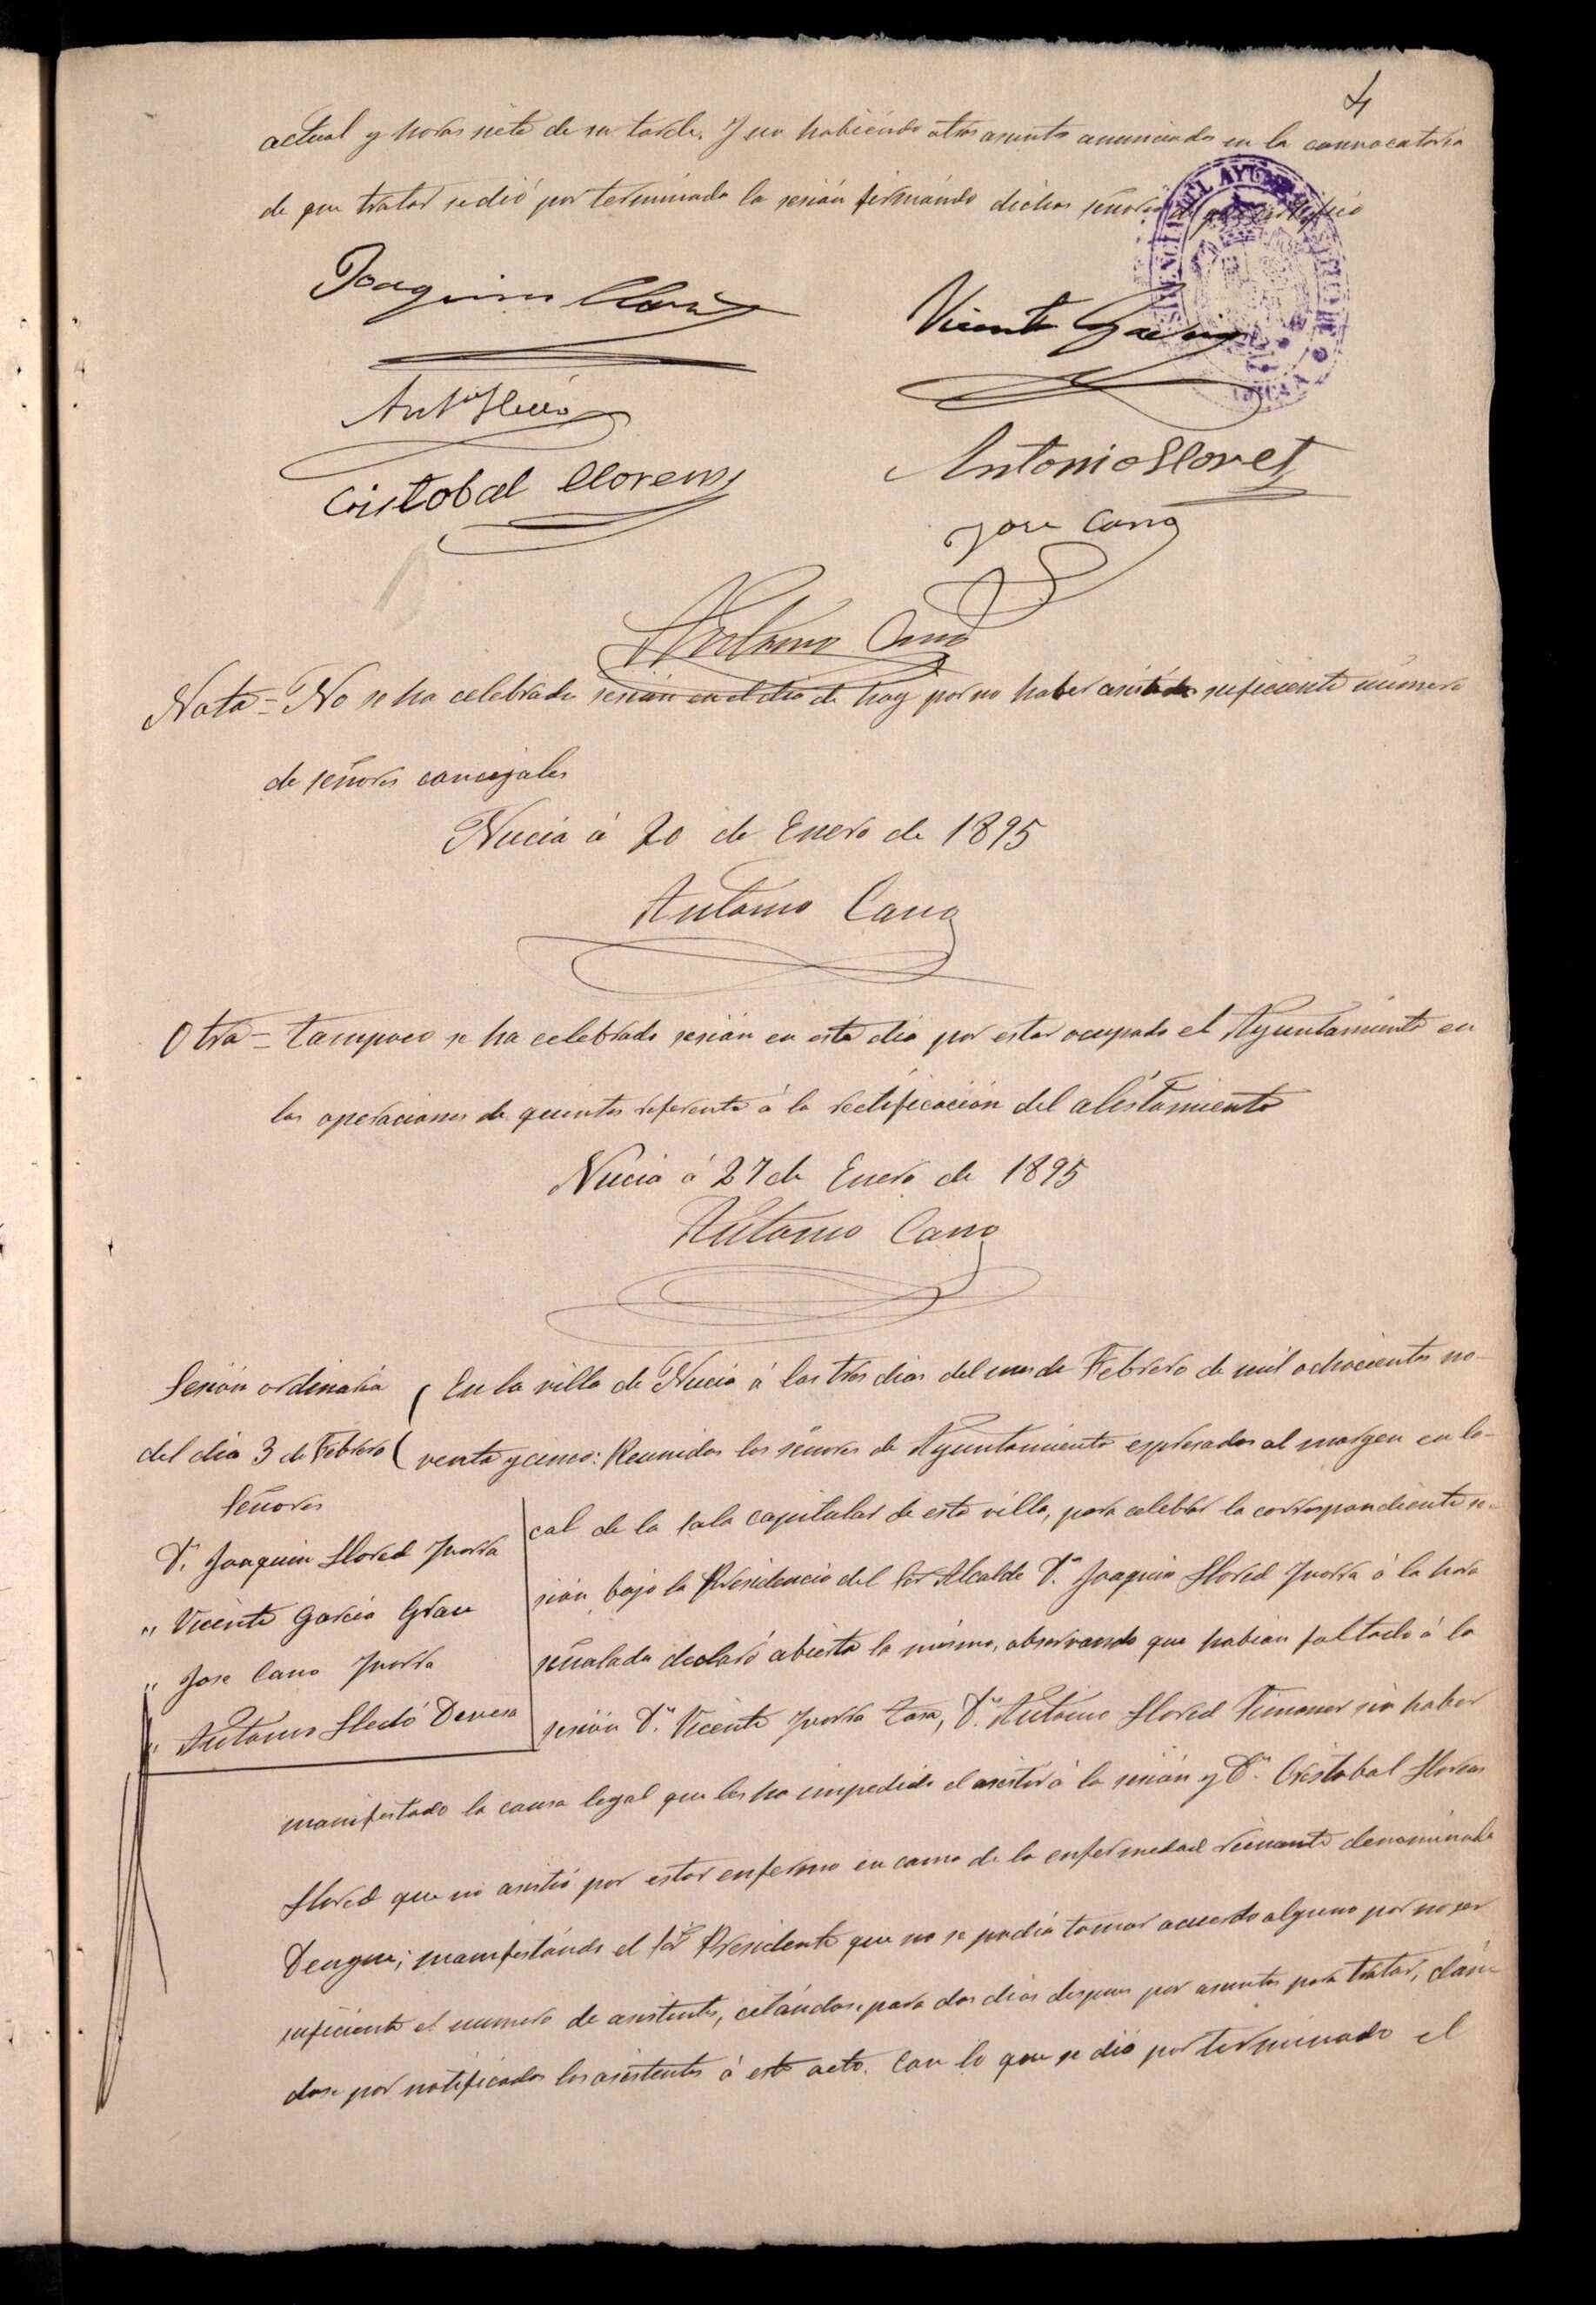 4
actual y horas siete de su tarde. Y no habiendo otros asuntos anunciados en la convocatoria
de que tratar se dió por terminada la sesión firmándo dichos señores de que certifico
Joaquin Lloret
Vicente Garcia
Antº Lledó
Antonio Lloret
Cristobal Llorens
Jose Cano
Antonio Cano
Nota = No se ha celebrado sesión en el dia de hoy por no haber asistido suficiente número
de señores concejales
Nucia á 20 de Enero de 1895
Antonio Cano
Otra = tampoco se ha celebrado sesión en este dia por estar ocupado el Ayuntamiento en
las operaciones de quintas referente á la rectificación del alistamiento
Nucia á 27 de Enero de 1895
Antonio Cano
Sesión ordinaria
del dia 3 de Febrero
Señores
D. Joaquin Llored Yvorra
" Vicente Garcia Grau
" Jose Cano Yvorra
" Antonio Lledó Devesa
En la villa de Nucia á los tres dias del mes de Febrero de mil ochocientos no-
venta y cinco: Reunidos los señores de Ayuntamiento espresados al margen en lo-
cal de la sala capitular de esta villa, para celebrar la correspondiente se-
sión bajo la Presidencia del Sor Alcalde D.n Joaquin Llored Yvorra á la hora
señalada declaró abierta la misma, observando que habian faltado á la
sesión D.n Vicente Yvorra, D.n Antonio Llored sin haber
manifestado la causa legal que les ha impedido el asistir á la sesión y D.n Cristobal Llorens
Llored que no asistió por estar enfermo en cama de la enfermedad reinante denominada
Dengue; manifestándo el Sor Presidente que no se podia tomar acuerdo alguno por no ser
suficiente el numero de asistentes, citándose para dos dias despues por asuntos para tratar, dán-
dose por notificados los asistentes á este acto. Con lo que se dió por terminado el